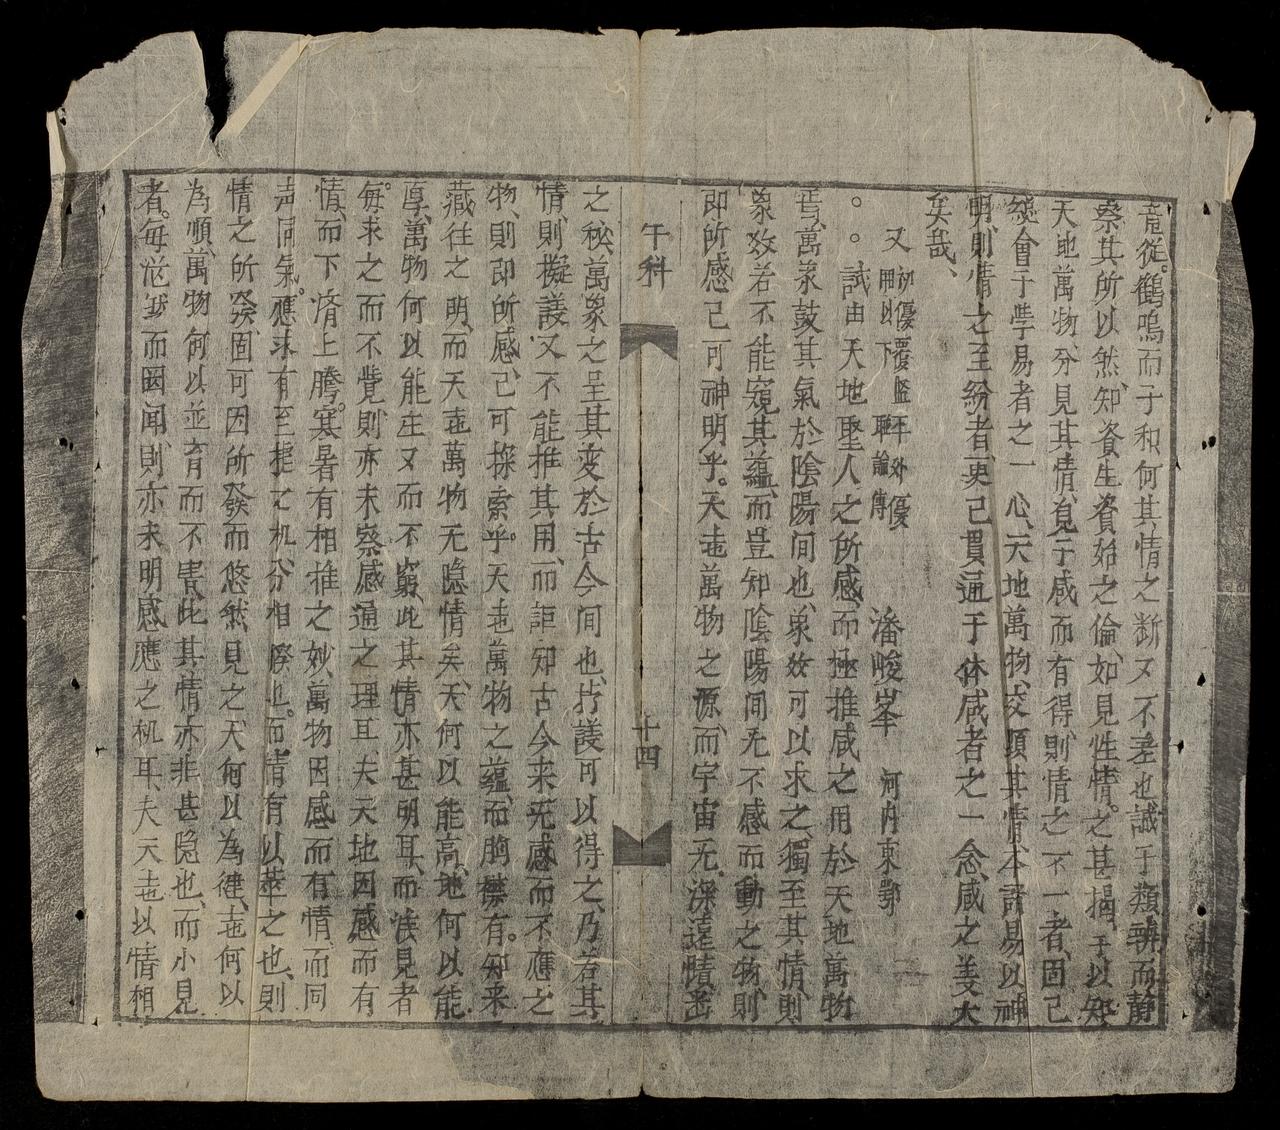 竜従。鶴鳴而子和何其情之断又不差也誠于類辨而静
察其所以然、知資生資始之倫、如見性情。之甚揭、于以知
天地萬物、分見其情、見于感而有得、則情之不一者、固己
會于學易者之一心、天地萬物交
明、則情之至紛者、吏己貫通于休咸者之一念、咸之美大
矣哉、
又 初優覆監平外優 甲以下 聴論傳 潘峻峯 河内東鄂
。。試由天地聖人之所感、而極推咸之用於天地萬物
焉、萬象鼓其氣於陰陽间也、象效可以求之、獨至其情、則
象效若不能窺其蘊、而豈知陰陽间无不感而動之物、則
即所感己可神明乎。天地萬物之源、而宇宙无深遠情
午科
十四
之秘、萬象之呈其变於古今间也、擬議可以得之、乃若其
情、則擬議又不能推其用、而詎知古今来无感而不應之
物、則即所感、己可探索乎。天地萬物之蘊、而胸襟有。知来
藏往之明、而天地萬物无隐情矣、天何以能高、地何以能
厚、萬物何以能生又而不窮、此其情亦甚明耳、而浅見者
每。求之而不覺則亦未察感通之理耳、夫天地因感而有
情、而下済上騰。寒暑有相推之妙、萬物因感而有情、而同
声同氣。應求有至捷之机、分相睽也。而情有以萃之也、則
情之所發、固可因所發而悠然見之、天何以為健、地何以
為順、萬物何以並育而不害、此其情亦非甚隐也、而小見
者。每泥跡而罔闻、則亦未明感應之机耳、夫天地以情相